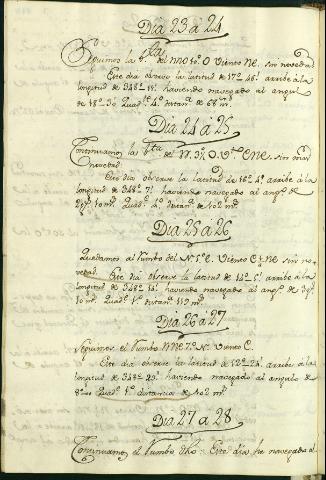 Dia 23 á 24
Seguimos la dta. del NNO 1º O Viento NE. sin novedad
Este dia observe la latitud de 17º 46' arribe á la
longitud de 348º 18' haviendo navegado al angulo
de 18º 30' Quadte. 4º distancia de 68 ms.
Dia 24 á 25
Continuamos la dta. del N. 3º O. Vto. ENE. sin
novedad
Este dia observe la latitud de 16º 4' arribe á la
longitud de 348º 7' haviendo navegado al angº. de
Quadte. 4º distanª. de 102 ms.
Dia 25 á 26
Quedamos al Rumbo del N. 5º E. Viento E¼NE sin no-
vedad. Este dia observe la latitud de 14º 5' arribe á la
longitud de 348º 14' haviendo navegado al angº. de 3º
10 ms. Quadte. 1º distanª. 119 ms.
Dia 26 á 27
Seguimos el Rumbo NNE 7º N. Viento E.
Este dia observe la latitud de 12º 24' arribe á la
longitud de 348º 29' haviendo navegado al angulo de
8º Quadte. 1º distancia de 102 ms.
Dia 27 á 28
Continuamos el Rumbo dho. Este dia he navegado al